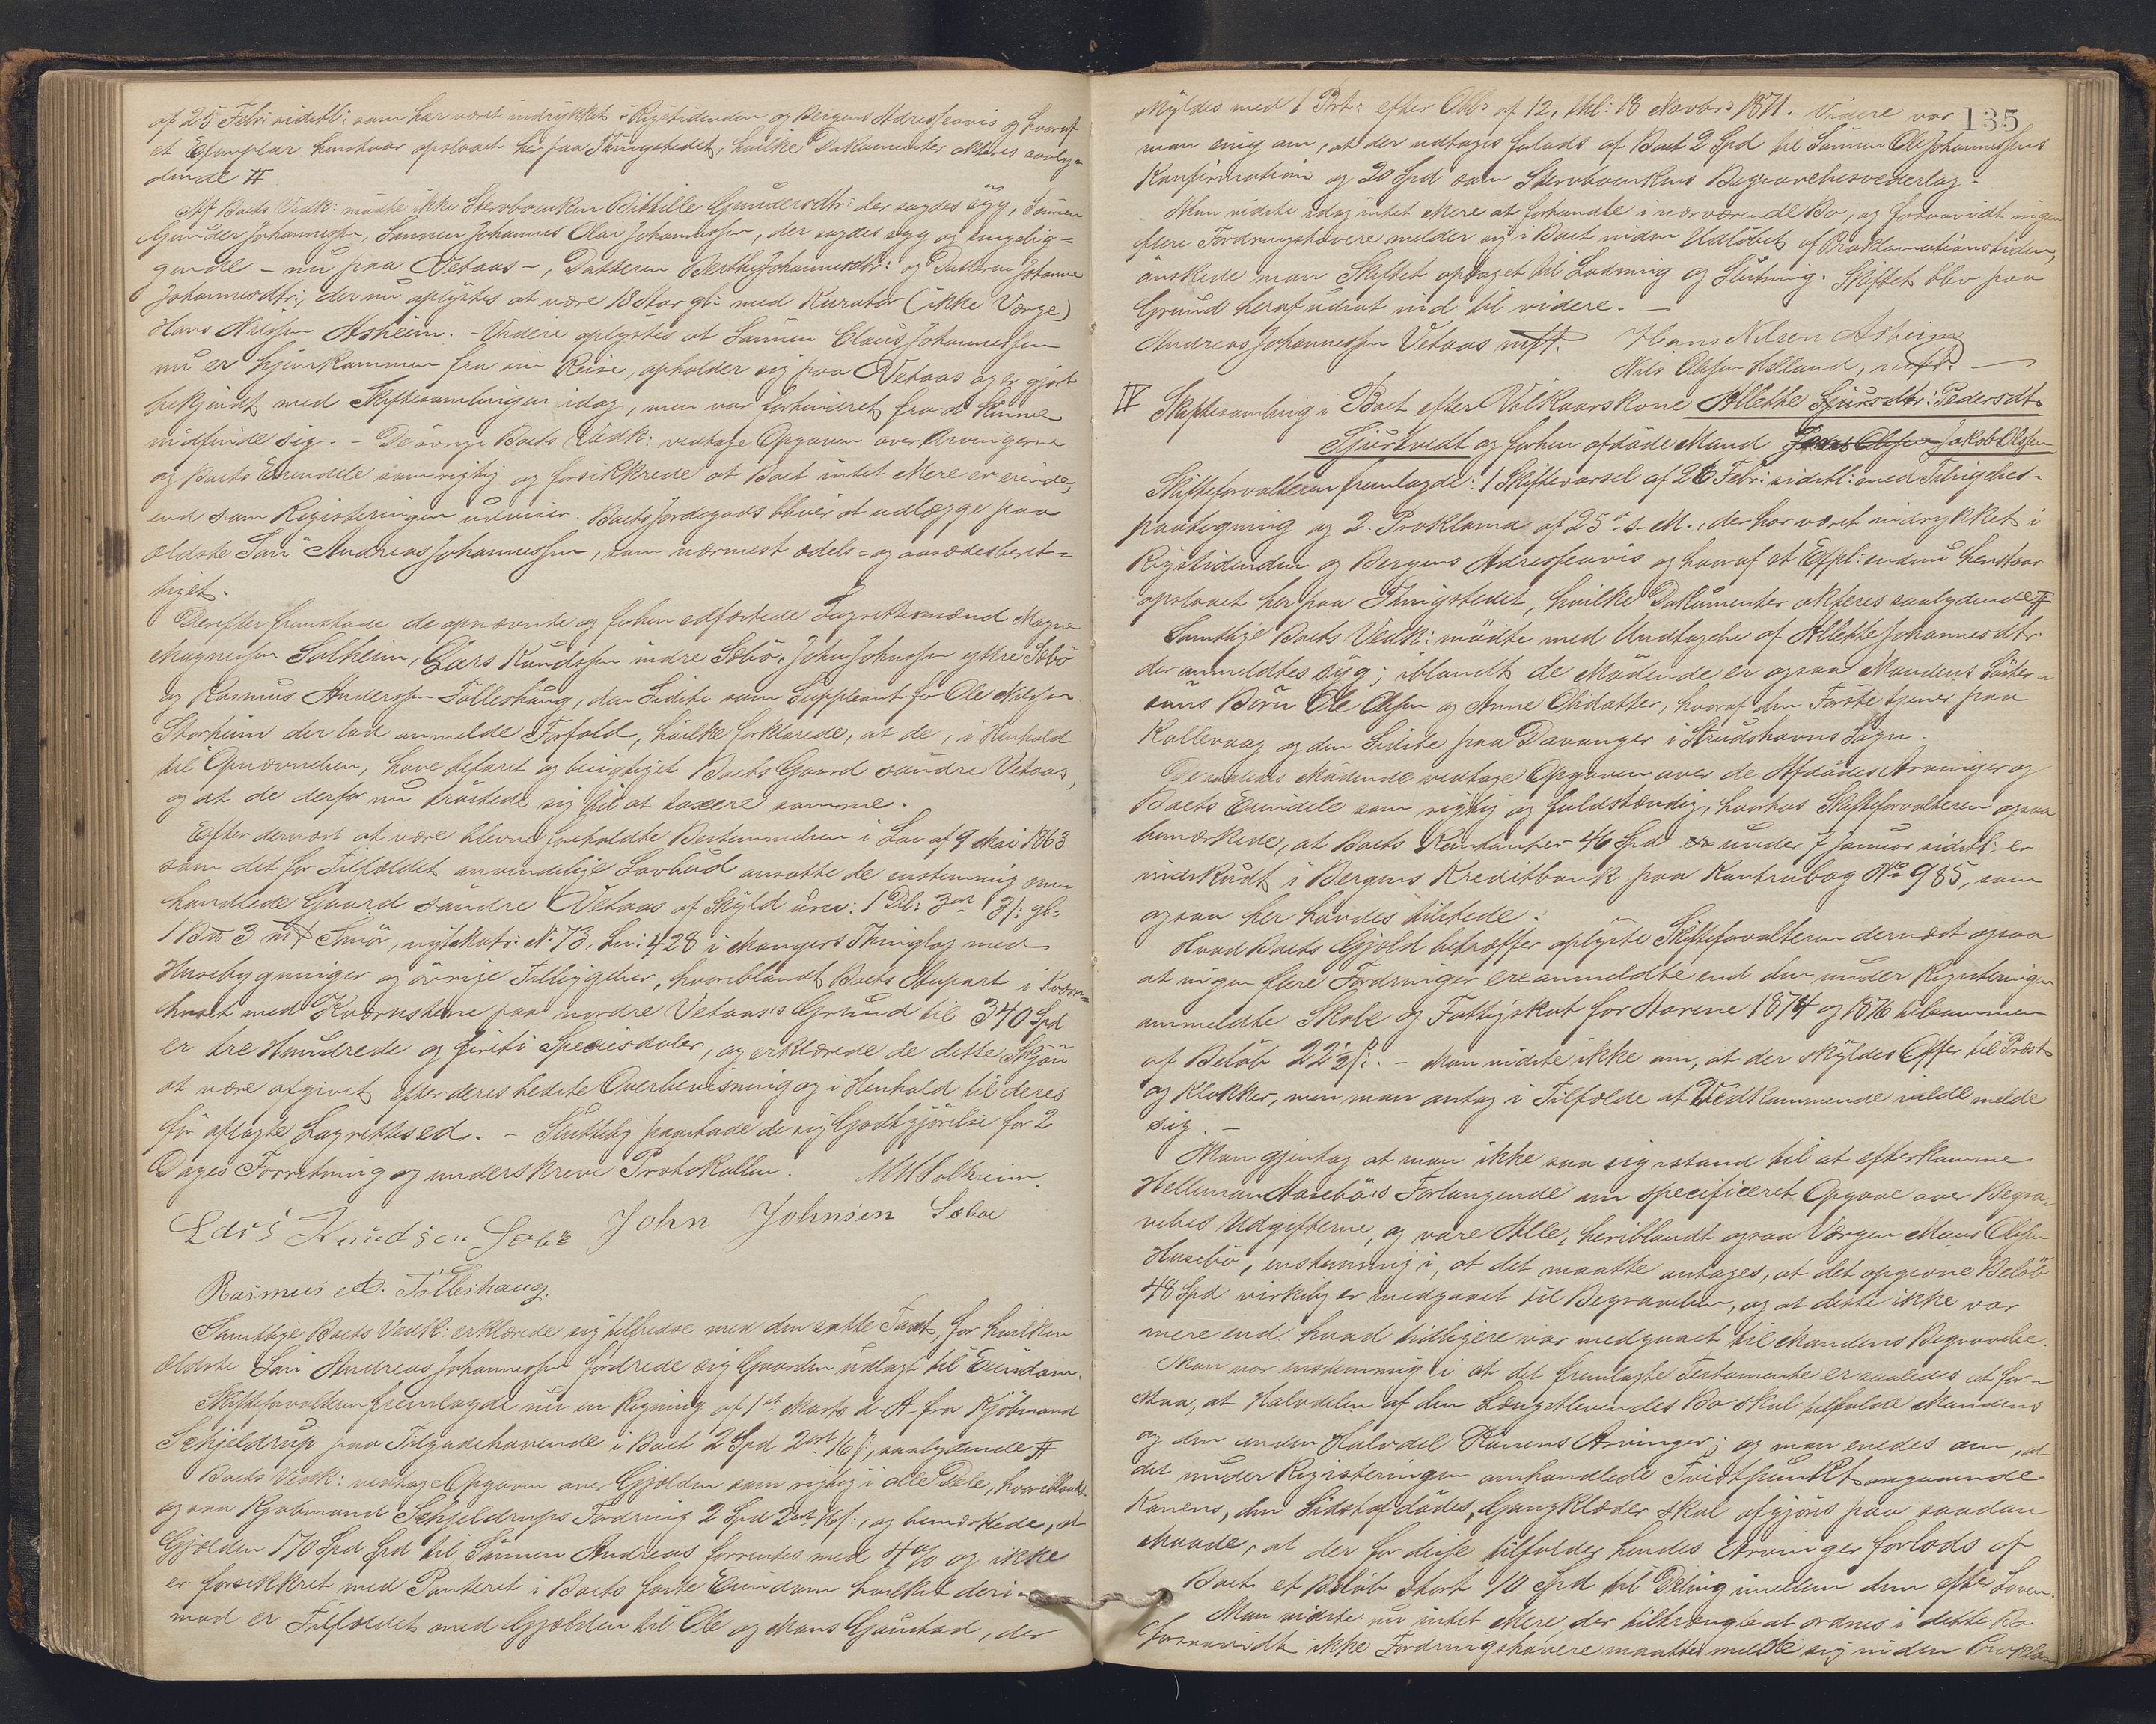 af 25 Febr: sidstl: som har været indrykket i Rigstidenden og Bergens Adresseavis og hvoraf
et Exemplar henstaar opslaaet her paa Thingstedet, hvilke Dokumenter akteres saaly-
dende #
Af Boets Vedk: mødte ikke Stervboenken Bithille Gundersdtr: der sagdes syg, Sønnen
Gunder Johannessen, Sønnen Johannes Olai Johannessen, der sagdes syg og
- nu paa Vetaas -, Datteren Berthe Johannesdtr: og Datteren Johanne
Johannesdtr:, der nu oplystes at være 18 Aar gl: med Kurator (ikke Værge)
Hans Nilssen Asheim. - Videre oplystes at Sønnen Claus Johannessen
nu er hjemkommen fra sin Reise, opholder sig paa Vetaas og er gjort
bekjendt med Skiftesamlingen idag, men var forhindret fra at kunne
indfinde sig. - De øvrige Boets Vedk: vedtoge Opgaven over Arvingerne
og Boets Eiendele som rigtig og forsikkrede at Boet intet Mere er eiende,
end som Registeringen udviser. Boets Jordegods bliver at udlægge paa
ældste Søn Andreas Johannessen, som nærmest odels- og aasædesberet-
tiget.
Derefter fremstode de opnævnte og forhen edfæstede Lagrettesmænd Magne
Magnessen Solheim, Lars Knudssen indre Sebø, John Johnssen ytre Sebø
og Rasmus Anderssen Tolleshaug, den Sidste som Suppleant for Ole Nilssen
Storheim der lod anmelde Forfald, hvilke forklarede, at de, i Henhold
til Opnævnelsen, have befaret og besigtiget Boets Gaard søndre Vetaas,
og at de derfor nu trøstede sig til at taxere samme.
Efter dernæst at være blevne foreholdte Bestemmelsen i Lov af 9 Mai 1863
som det for Tilfældet anvendelige Lovbud ansatte de enstemmig om-
handlede Gaard søndre Vetaas af Skyld urev: 1 Dl: 3 ort 13 s: gl:
1 Bpd 3 mk Smør, nyt Matr: N: 73, Lv: 428 i Mangers Thinglag med
Husebygninger og øvrige Tilliggelser, hvoriblandt Boets Anpart i Kværn-
huset med Kværnstene paa nordre Vetaas's Grund til 340 Spd
er tre Hundrede og firti Speciesdaler, og erklærede de dette Skjøn
at være afgivet efter deres bedste Overbevisning og i Henhold til deres
før aflagte Lagrettesed. - Sluttelig paastode de sig Godtgjørelse for 2
Dages Forretning og underskreve Protokollen. M M Solheim.
Lars Knudsen Sebø John Johnsen Sebøe
Rasmus A. Tolleshaug.
Samtlige Boets Vedk: erklærede sig tilfredse med den satte Taxt, for hvilken
ældste Søn Andreas Johannessen fordrede sig Gaarden udlagt til Eiendom.
Skifteforvalteren fremlagde nu en Regning af 1ste Marts d. A. fra Kjøbmand
Schjeldrup paa Tilgodehavende i Boet 2 Spd 2 ort 16 s:, saalydende #
Boets Vedk: vedtoge Opgaven over Gjælden som rigtig i alle Dele, hvoriblandt
ogsaa Kjøbmand Schjeldrups Fordring 2 Spd 2 ort 16 s:, og bemærkede, at
Gjælden 170 Spd Spd til Sønnen Andreas forrentes med 4 % og ikke
er forsikkret med Panteret i Boets faste Eiendom hvilket deri-
mod er Tilfældet med Gjælden til Ole og Mons Gaustad, der
135
skyldes med 1 Prt: efter Obl: af 12, thl: 18 Novbr: 1871. Videre var
man enig om, at der udtages forlods af Boet 2 Spd til Sønnen Ole Johannessens
Konfirmation og 20 Spd som Stervboenkens Begravelsesvederlag.
Man vidste idag intet Mere at forhandle i nærværende Bo, og forsaavidt ingen
flere Fordringshavere melder sig i Boet inden Udløbet af Proklamationstiden,
ønskede man Skiftet optaget til Lodning og Slutning. Skiftet blev paa
Grund heraf udsat ind til videre. -
Andreas Johannessen Vetaas m.f.P. Hans Nilsen Asheim
Nils Olssen Helland, m.f.P. -
IV Skiftesamling i Boet efter Vilkaarskone Allethe Sjursdtr: Pedersdt:
Sjurtvedt og forhen afdøde Mand Jens Olssen Jakob Olssen
Skifteforvalteren fremlagde: 1 Skiftevarsel af 26 Febr: sidstl: med Tilsigelses-
paategning og 2. Proklama af 25 s. M., der har været indrykket i
Rigstidenden og Bergens Adresseavis og hvoraf et Expl: endnu henstaar
opslaaet her paa Thingstedet, hvilke Dokumenter akteres saalydende #
Samtlige Boets Vedk: mødte med Undtagelse af Allethe Johannesdtr:
der anmeldtes syg; iblandt de Mødende er ogsaa Mandens Søster-
søns Børn Ole Olsen og Anne Olsdatter, hvoraf den Første tjener paa
Kollevaag og den Sidste paa Davanger i Strudshavns Sogn.
De saaledes Mødende vedtoge Opgaven over de Afdødes Arvinger og
Boets Eiendele som rigtig og fuldstændig, hvorhos Skifteforvalteren ogsaa
bemærkede, at Boets Kontanter 46 Spd er under 7 Januar sidstl: er
indskudt i Bergens Kreditbank paa Kontrabog No 985, som
ogsaa her havdes tilstede.
Hvad Boets Gjæld betræffer oplyste Skifteforvalteren dernæst ogsaa
at ingen flere Fordringer ere anmeldte end den under Registeringen
anmeldte Skole og Fattigskat for Aarene 1874 og 1876 tilsammen
af Beløb 22 1/2 s: - Man vidste ikke om, at der skyldes Offer til Præst
og Klokker, men man antog i Tilfælde at Vedkommende vilde melde
sig. -
Man gjentog at man ikke saa sig istand til at efterkomme
Husebø's Forlangende om specificeret Opgave over Begra-
velses Udgifterne, og vare Alle, heriblandt ogsaa Værgen Mons Olssen
Husebø, enstemmig i, at det maatte antages, at det opgivne Beløb
48 Spd virkelig er medgaaet til Begravelsen, og at dette ikke var
mere end hvad tidligere var medgaaet til Mandens Begravelse.
Man var enstemmig i at det fremlagte Testamente er saaledes at for-
staa, at Halvdelen af den Længstlevendes Bo skal tilfalde Mandens
og den anden Halvdel Konens Arvinger; og man enedes om, at
det under Registeringen omhandlede Tvistpunkt angaaende
Konens, den Sidstafdødes, Gangklæder skal afgjøres paa saadan
Maade, at der for disse tilfalder hendes Arvinger forlods af
Boet et Beløb stort 10 Spd til Deling imellem dem efter Loven.
Man vidste nu intet Mere, der tiltrængte at ordnes i dette Bo
forsaavidt ikke Fordringshavere maatte melde sig inden Proklam